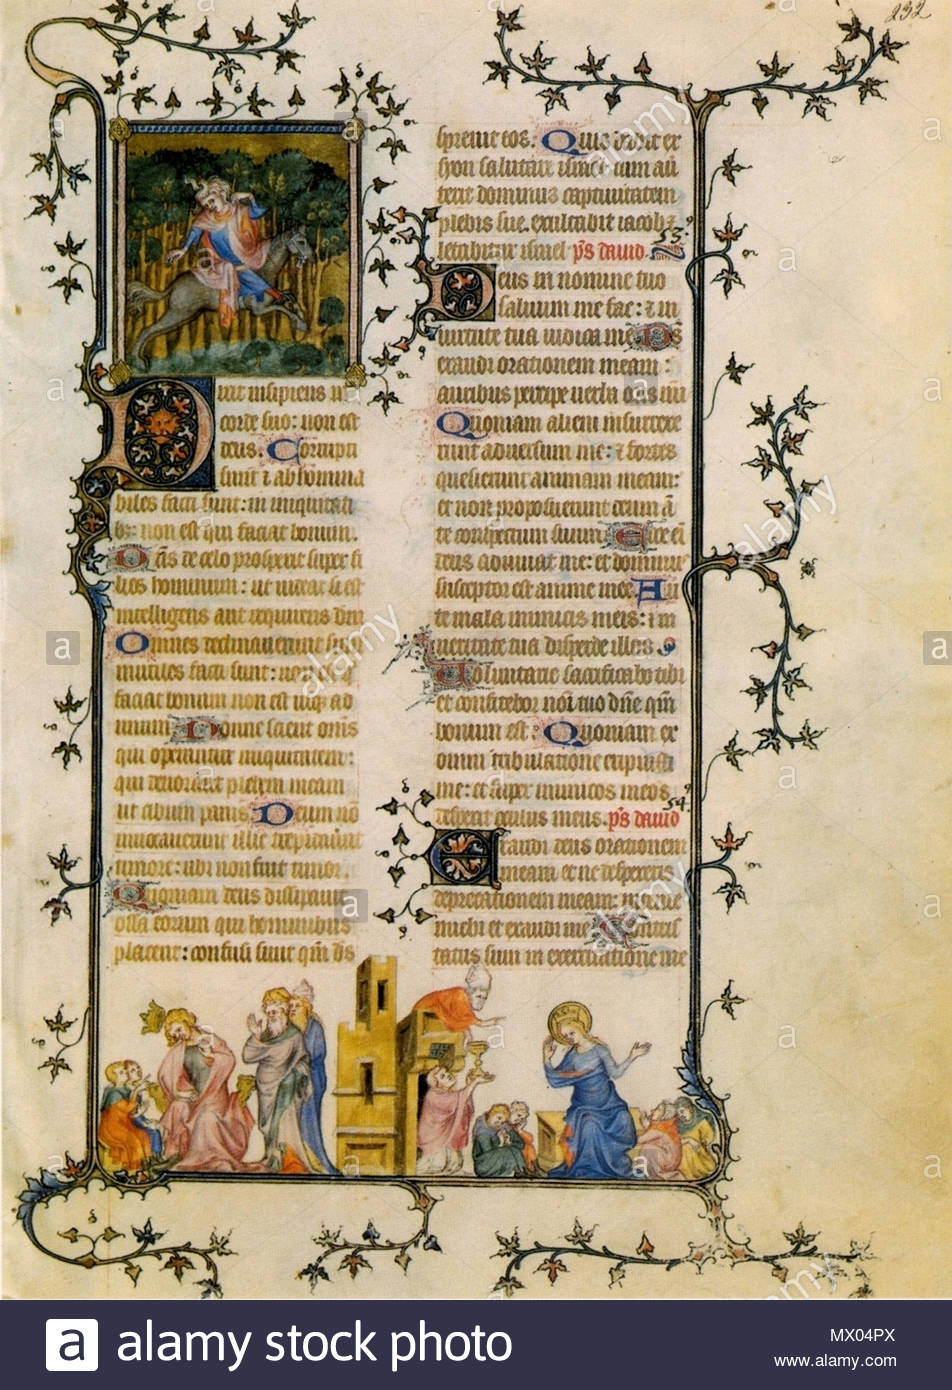 232
Dixit insipiens in
corde suo: non est
deus. Corrupti
sunt & abhomina
biles facti sunt: in iniquitati
bꝫ: non est qui faciat bonum.
Dẽs de celo prospexit super fi
lios hominum: ut uideat si est
intelligens aut requirens dm̃
Omnes declinauerunt sim̃
inutiles facti sunt: non est qui
faciat bonum non est usqꝫ ad
unum Nonne scient om̃s
qui operantur iniquitatem:
qui deuorant plebem meam
ut cibum panis Deum nõ
inuocauerunt illic trepidauer̃nt
timore: ubi non fuit timor.
Quoniam deus dissipauit
ossa eorum qui hominibus
placent: confusi sunt qm̃ ds
spreuit eos. Quis dabit ex
syon salutare israel cum au̾
terit dominus captiuitatem
plebis sue. exultabit iacob &
letabitur israel p̃s dauid. 53.
Deus in nomine tuo
saluum me fac: & in
uirtute tua iudica me Dẽs
exaudi orationem meam:
auribus percipe uerba oris mei
Quoniam alieni insurrexe
runt aduersum me: & fortes
quesierunt animam meam:
et non proposuerunt deum ãn
te conspectum suum Ecce eñ
deus adiuuat me: et dominus
susceptor est anime mee Auer
te mala inimicis meis: & in
ueritate tua disperde illos
Uoluntarie sacrificabo tibi
et confitebor noĩ tuo dñe qm̃
bonum est: Quoniam ex
omni tribulatione eripuisti
me: et super inimicos meos
despexit oculus meus. p̃s dauid 54.
Exaudi deus orationem
meam et ne despexeris
deprecationem meam: intende
michi et exaudi me Contris
tatus sum in exercitatione me
alamy stock photo
MX04PX
www.alamy.com